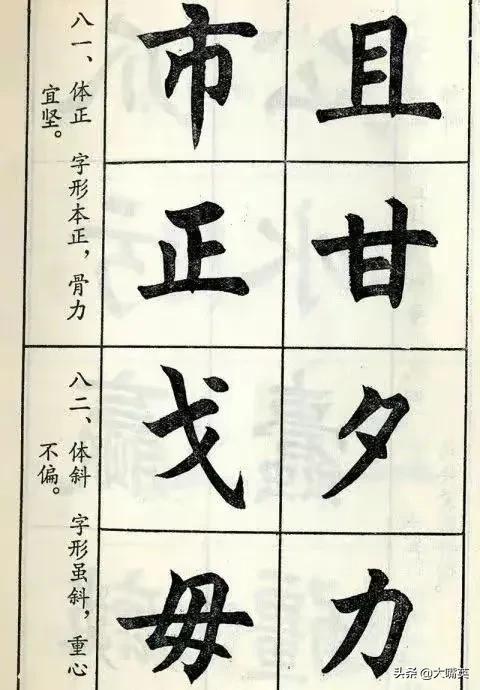 八一、体正　字形本正，骨力
宜坚。
且甘
市正
八二、体斜　字形虽斜，重心
不偏。
夕力
戈毋
头条 @大嘴英